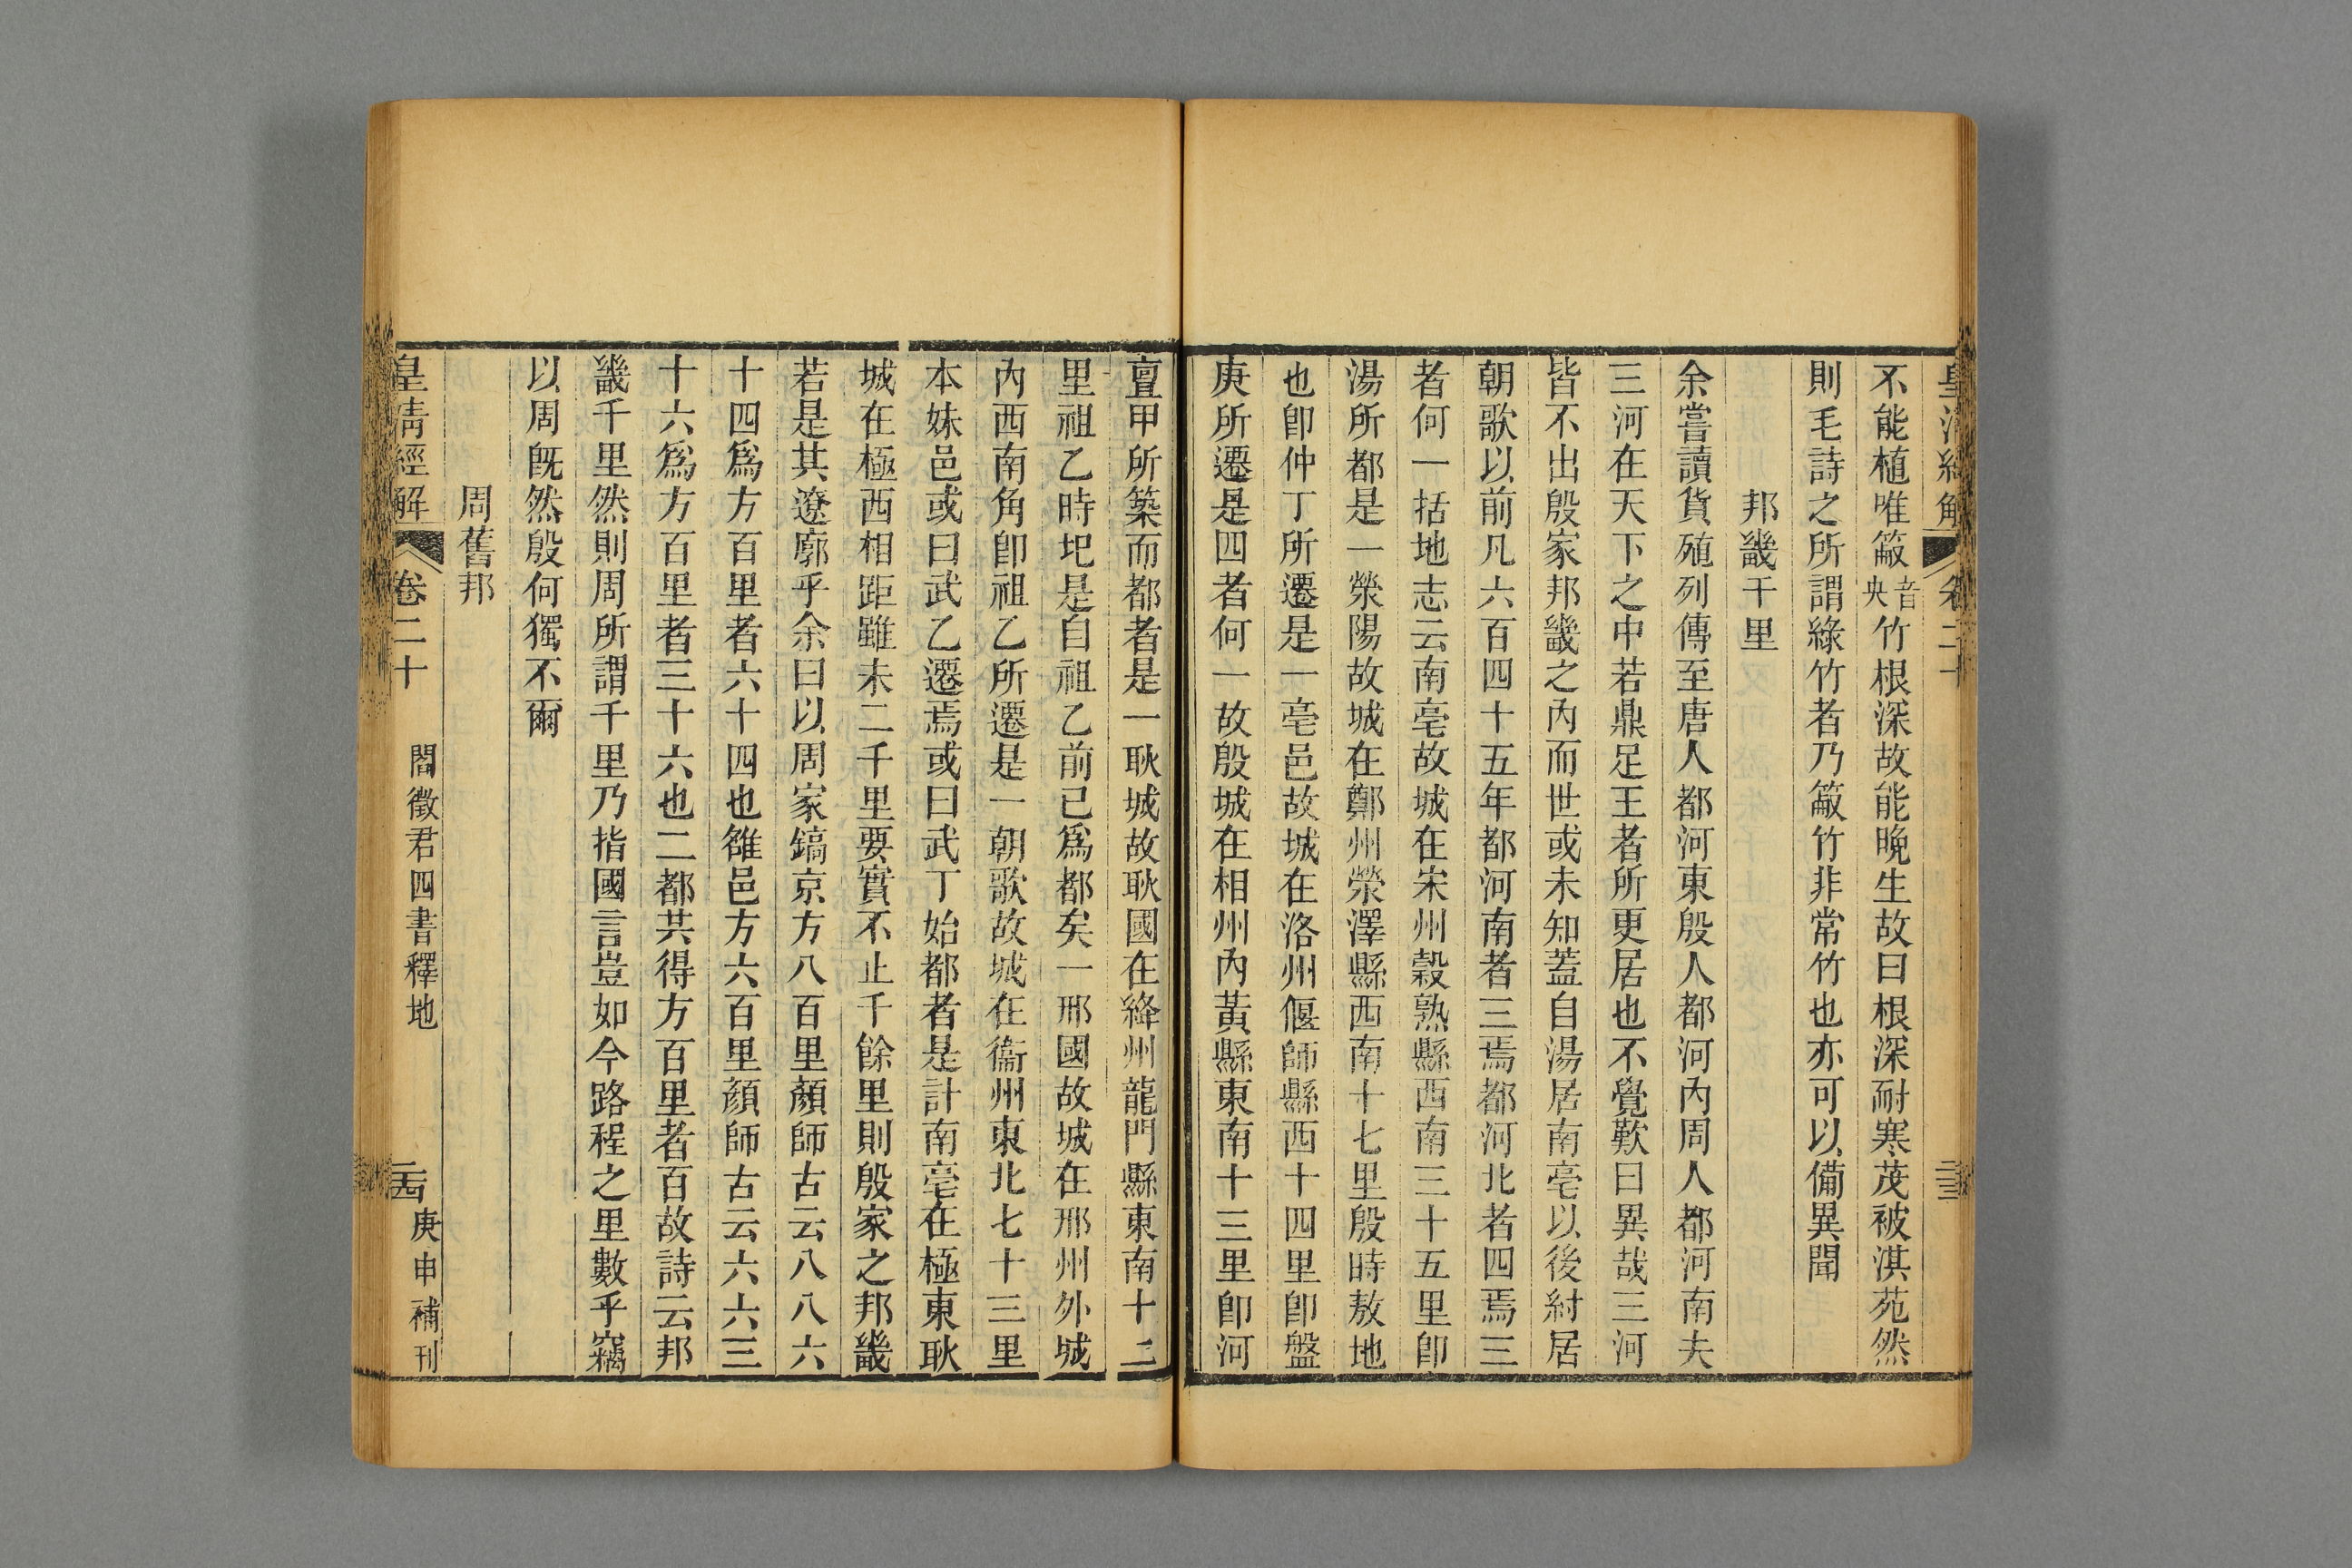 不能植唯䉛音央竹根深故能晚生故曰根深耐寒茂被淇苑然
則毛詩之所謂綠竹者乃䉛竹非常竹也亦可以備異聞
邦畿千里
余嘗讀貨殖列傳至唐人都河東殷人都河內周人都河南夫
三河在天下之中若鼎足王者所更居也不覺歎曰異哉三河
皆不出殷家邦畿之內而世或未知蓋自湯居南亳以後紂居
朝歌以前凡六百四十五年都河南者三焉都河北者四焉三
者何一括地志云南亳故城在宋州穀熟縣西南三十五里卽
湯所都是一滎陽故城在鄭州滎澤縣西南十七里殷時敖地
也卽仲丁所遷是一亳邑故城在洛州偃師縣西十四里卽盤
庚所遷是四者何一故殷城在相州內黃縣東南十三里卽河
亶甲所築而都者是一耿城故耿國在絳州龍門縣東南十二
里祖乙時圯是自祖乙前已爲都矣一邢國故城在邢州外城
內西南角卽祖乙所遷是一朝歌故城在衞州東北七十三里
本妹邑或曰武乙遷焉或曰武丁始都者是計南亳在極東耿
城在極西相距雖未二千里要實不止千餘里則殷家之邦畿
若是其遼廓乎余曰以周家鎬京方八百里顏師古云八八六
十四爲方百里者六十四也雒邑方六百里顏師古云六六三
十六爲方百里者三十六也二都共得方百里者百故詩云邦
畿千里然則周所謂千里乃指國言豈如今路程之里數乎竊
以周旣然殷何獨不爾
周舊邦
皇清經解 卷二十 閻徵君四書釋地 二十四 庚申補刊